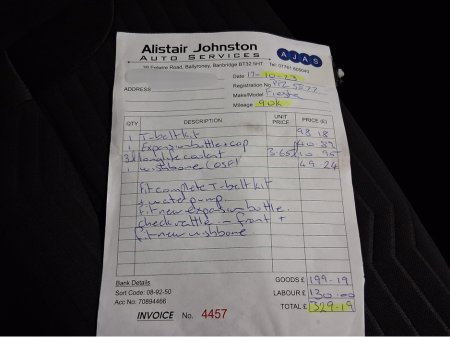 Alistair Johnston
AUTO SERVICES
AJAS
Road, Ballyroney, Banbridge BT32 5HT
Date 12-10-23
ADDRESS
Registration No.
Make/Model Fiesta
Mileage 90k
QTY DESCRIPTION UNIT PRICE PRICE (£)
1 T-belt kit 98 18
1 Expansion bottle + cap 40 82
3 longlife coolant 3.65 10 95
1 wishbone 49 24
fit complete T-belt kit
+ water pump.
fit new expansion bottle.
check rattle - front +
fit new wishbone
GOODS £ 199-19
Bank Details
LABOUR £ 130-00
Sort Code: 08-92-50
TOTAL £ 329-19
Acc No: 70894466
INVOICE No. 4457